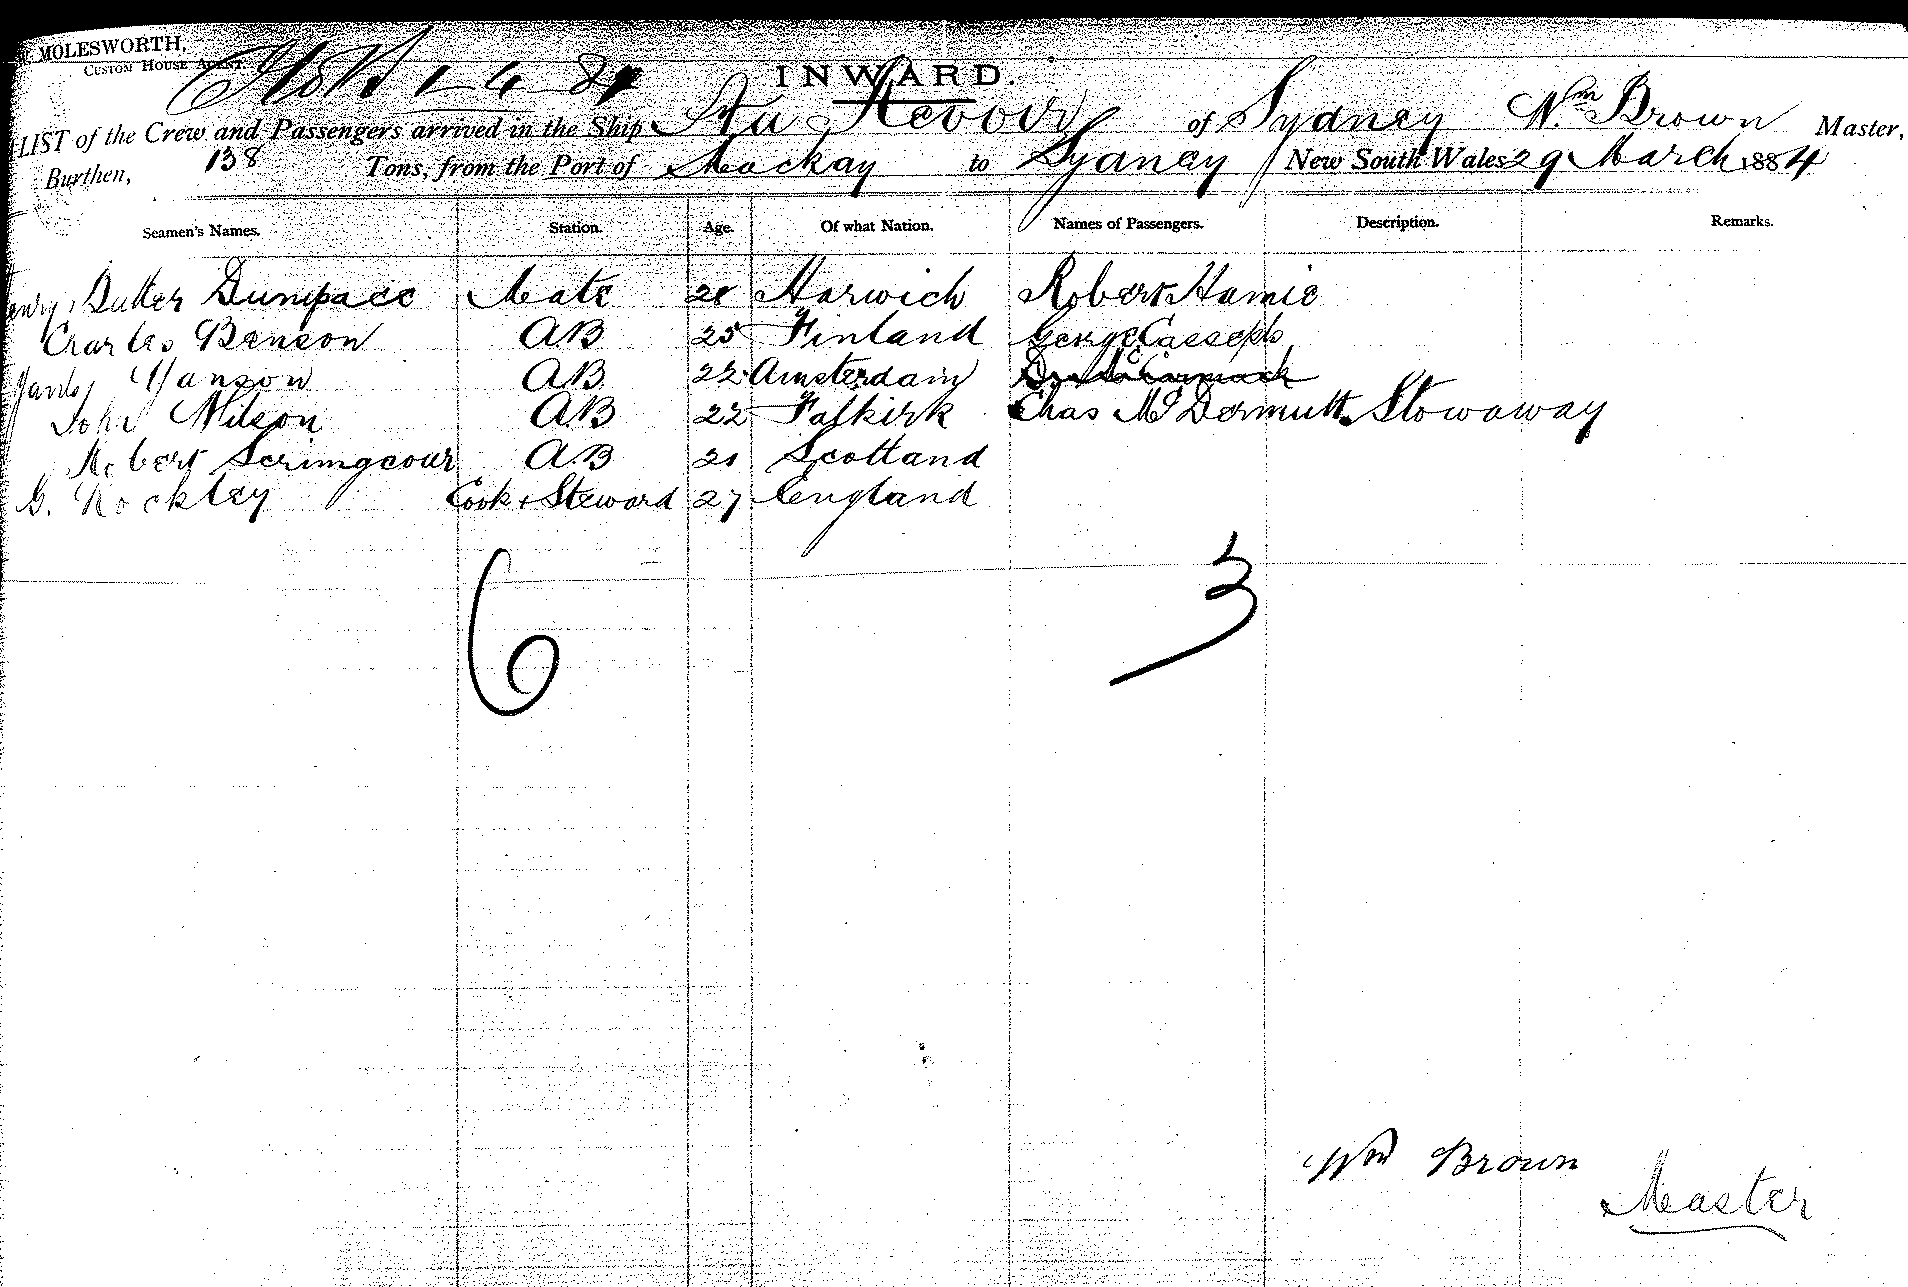 MOLESWORTH,
CUSTOM HOUSE AGENT.
1-4-84
INWARD.
LIST of the Crew and Passengers arrived in the Ship Au Revoir of Sydney Wm Brown Master,
Burthen, 138 Tons, from the Port of Mackay to Sydney New South Wales 29 March 1884
Seamen's Names. Station. Age. Of what Nation. Names of Passengers. Description. Remarks.
Henry Butler Dunpace Mate 28 Harwich Robert Hamie
Charles Benson AB 25 Finland George
Hanson AB 22 Amsterdam Dr McCormack
John Wilson AB 22 Falkirk Chas McDermutt Stowaway
Robert Scrimgeour AB 21 Scotland
G. Rockley Cook & Steward 27 England
6 3
Wm Brown
Master